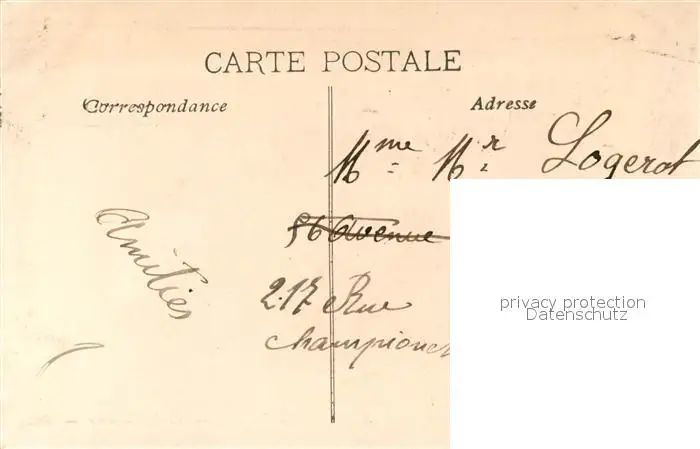 CARTE POSTALE
Correspondance
Adresse
Mme Mr Logerot
56 Avenue
Amitiés
217 Rue
Championnet
privacy protection
Datenschutz